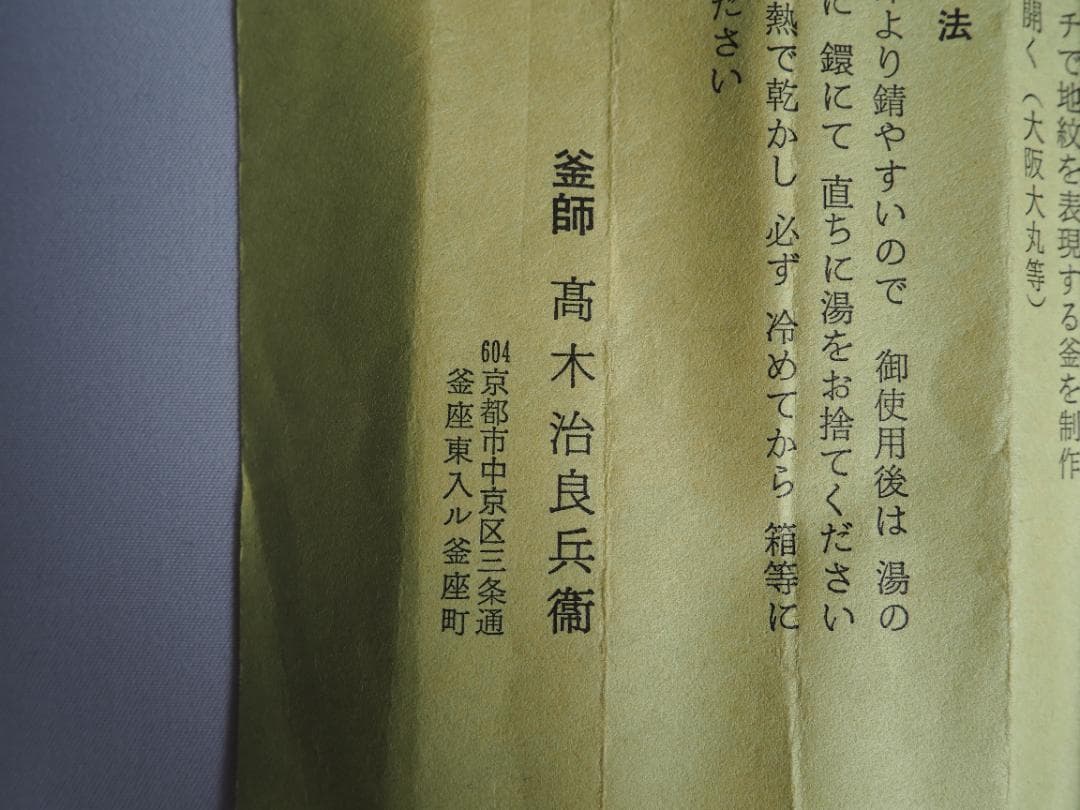 チで地紋を表現する釜を制作
開く（大阪大丸等）
法
より錆やすいので　御使用後は　湯の
に　鐶にて　直ちに湯をお捨てください
熱で乾かし　必ず　冷めてから　箱等に
ださい
釜師　髙木治良兵衞
604京都市中京区三条通
釜座東入ル釜座町